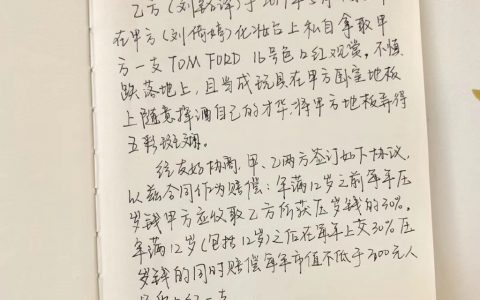 乙方(刘
在甲方(刘倚婧)化妆台上私自拿取甲
方一支TOM FORD 16号色口红观赏,不慎
跌落地上,且当成玩具在甲方卧室地板
上随意挥洒自己的才华,将甲方地板弄得
五彩斑斓。
经友好协商,甲、乙两方签订如下协议,
以兹合同作为赔偿:年满12岁之前每年压
岁钱甲方应收取乙方所获压岁钱的30%。
年满12岁(包括12岁)之后在每年上交30%压
岁钱的同时赔偿每年市值不低于300元人